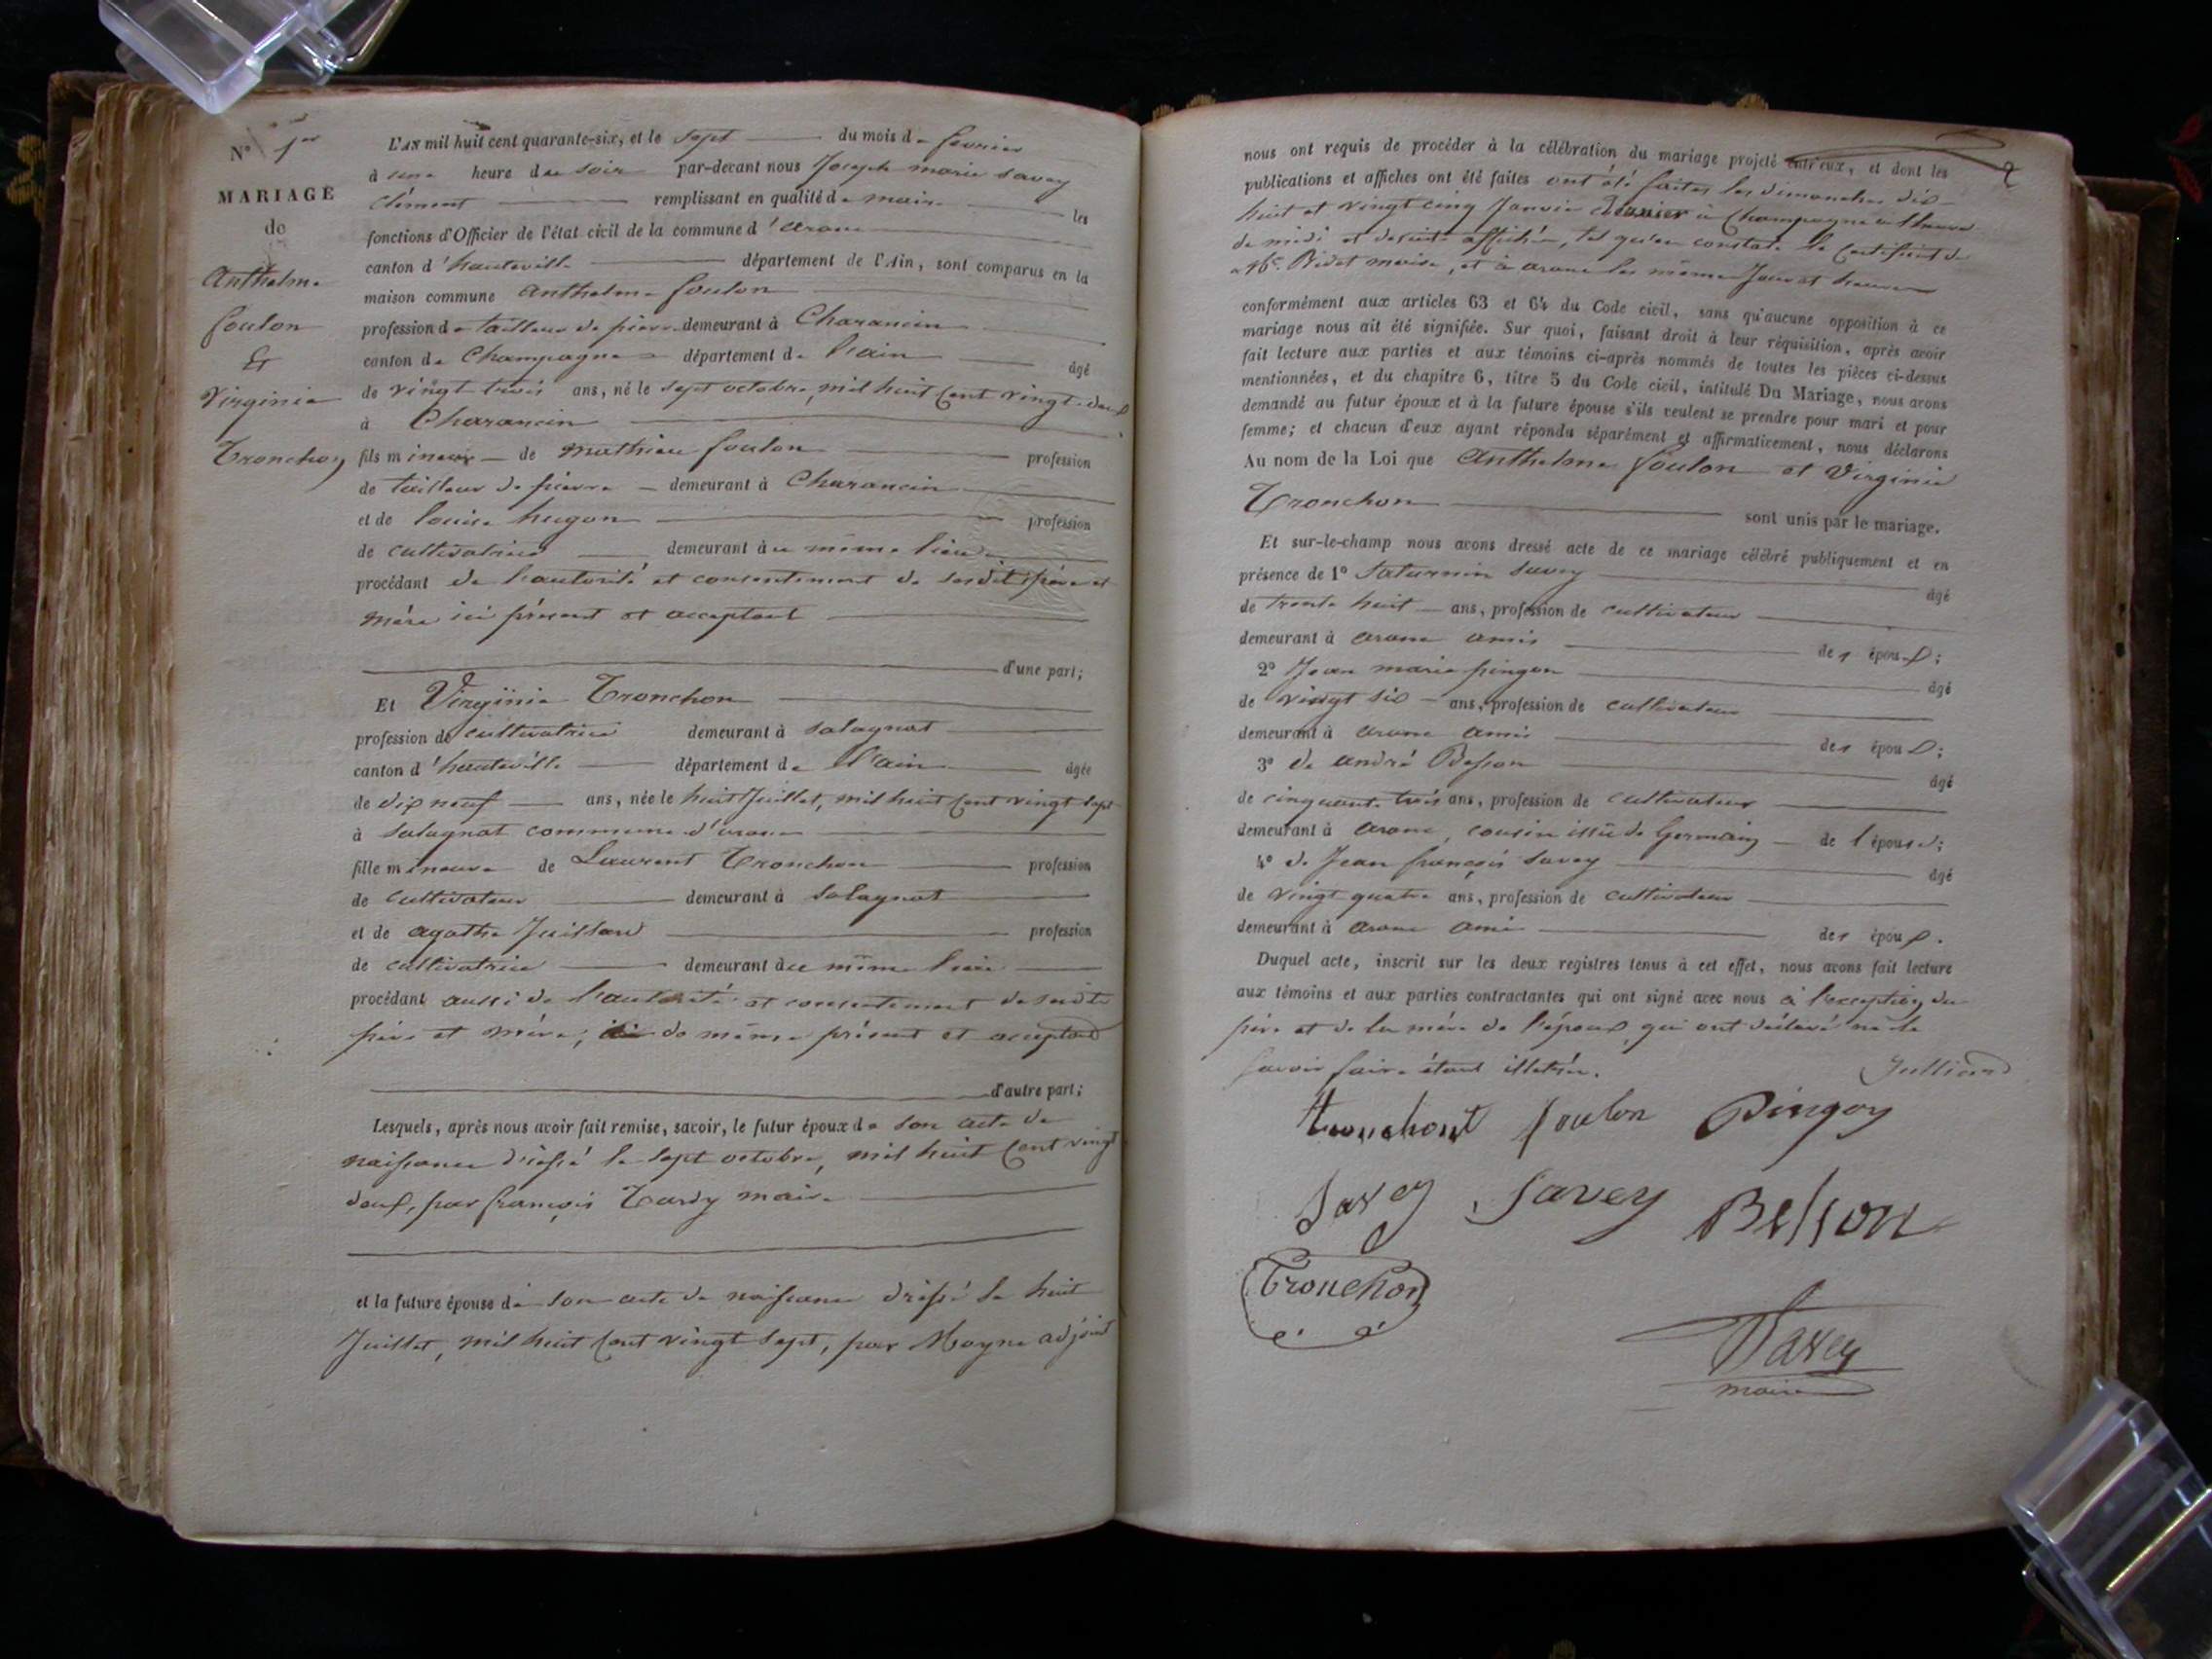 N° 1er
MARIAGE
de
Anthelme
foulon
Et
Virginie
Tronchon
L'AN mil huit cent quarante-six, et le sept du mois de fevrier
à une heure du soir par-devant nous Joseph marie savey
clément remplissant en qualité de maire les
fonctions d'Officier de l'état civil de la commune d'arane
canton d'hauteville département de l'Ain, sont comparus en la
maison commune Anthelme foulon
profession de tailleur de pierre demeurant à Charancin
canton de Champagne département de l'ain âgé
de vingt trois ans, né le sept octobre, mil huit Cent vingt-deux
à Charancin
fils mineur de mathieu foulon profession
de tailleur de pierre demeurant à Charancin
et de louise hugon profession
de cultivatrice demeurant au même lieu
procédant de l'autorité et consentement de sesdits père et
mère ici présent et acceptant
d'une part;
Et Virginie Tronchon
profession de cultivatrice demeurant à salagnat
canton d'hauteville département de l'ain âgée
de dix neuf ans, née le huit Juillet, mil huit Cent vingt sept
à salagnat commune d'arane
fille mineure de Laurent Tronchon profession
de cultivateur demeurant à salagnat
et de agathe Juillard profession
de cultivatrice demeurant au même lieu
procédant aussi de l'autorité et consentement de sesdits
père et mère; de même présent et acceptant
d'autre part;
Lesquels, après nous avoir fait remise, savoir, le futur époux de son acte de
naissance dressé le sept octobre, mil huit Cent vingt
deux, par françois Tardy maire
et la future épouse de son acte de naissance dressé le huit
Juillet, mil huit Cent vingt sept, par Moyne adjoint
2
nous ont requis de procéder à la célébration du mariage projeté entr'eux, et dont les
publications et affiches ont été faites ont été faites les dimanches dix-
huit et vingt cinq Janvier dernier à Champagne à l'heure
de midi et de suite affichée, tel qu'en constate le Certificat de
Mr. Bidet maire, et à arane les même Jour et heure
conformément aux articles 63 et 64 du Code civil, sans qu'aucune opposition à ce
mariage nous ait été signifiée. Sur quoi, faisant droit à leur réquisition, après avoir
fait lecture aux parties et aux témoins ci-après nommés de toutes les pièces ci-dessus
mentionnées, et du chapitre 6, titre 5 du Code civil, intitulé Du Mariage, nous avons
demandé au futur époux et à la future épouse s'ils veulent se prendre pour mari et pour
femme; et chacun d'eux ayant répondu séparément et affirmativement, nous déclarons
Au nom de la Loi que Anthelme foulon et Virginie
Tronchon sont unis par le mariage.
Et sur-le-champ nous avons dressé acte de ce mariage célébré publiquement et en
présence de 1° Saturnin savey âgé
de trente huit ans, profession de cultivateur
demeurant à arane amis des époux;
2° Jean marie pingon âgé
de vingt six ans, profession de cultivateur
demeurant à arane amis des époux;
3° de andré Besson âgé
de cinquante trois ans, profession de cultivateur
demeurant à arane, cousin issu de Germain de l'épouse;
4° de Jean françois savey âgé
de vingt quatre ans, profession de cultivateur
demeurant à arane ami des époux.
Duquel acte, inscrit sur les deux registres tenus à cet effet, nous avons fait lecture
aux témoins et aux parties contractantes qui ont signé avec nous à l'exception du
père et de la mère de l'époux qui ont déclaré ne le
savoir faire étant illetrée.
Julliard
tronchont foulon Pingon
Savey Savey Besson
Tronchon
Savey
maire